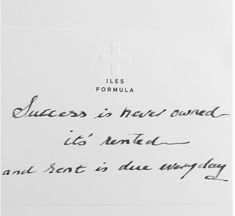 ILES
FORMULA
Success is never owned
it's rented
and rent is due everyday